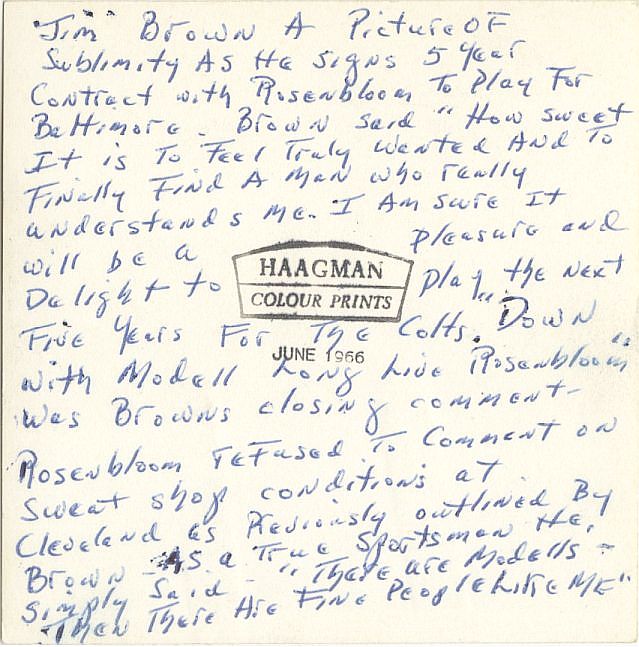 "Jim" Brown A Picture OF
Sublimity As He signs 5 year
Contract with Rosenbloom To Play For
Baltimore. Brown said "How sweet
It is To Feel Truly wanted And To
Finally Find A Man who really
understands me. I Am sure It
will be a pleasure and
Delight to play the next
Five years For The Colts. "Down
with Modell Long Live Rosenbloom"
was Browns closing comment-
Rosenbloom refused To Comment on
sweat shop conditions at
Cleveland as Previously outlined By
Brown - As a True Sportsman He,
simply said - "There are Modells -
Then There Are Fine People Like ME"
HAAGMAN
COLOUR PRINTS
JUNE 1966